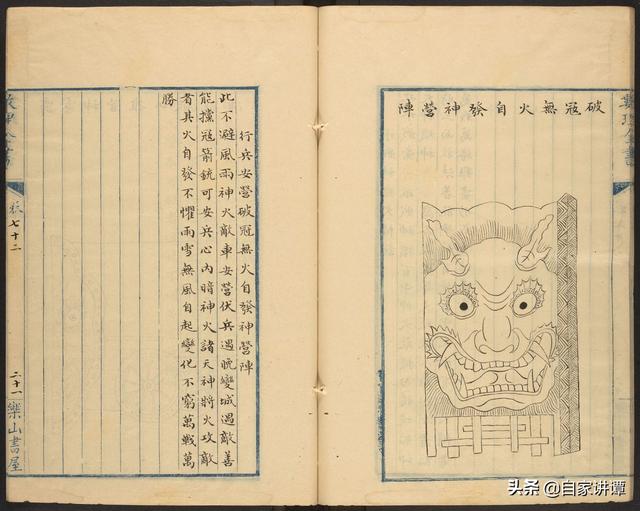 破冦無火自發神營陣
行兵安營破冦無火自發神營陣
此不避風雨神火敵車安營伏兵遇晚變城遇敵善
能擋冦箭銃可安兵心內暗神火諸天神將火攻敵
者其火自發不懼雨雪無風自起變化不窮萬戰萬
勝
卷七十二
二十一
樂山書屋
头条 @自家讲谭